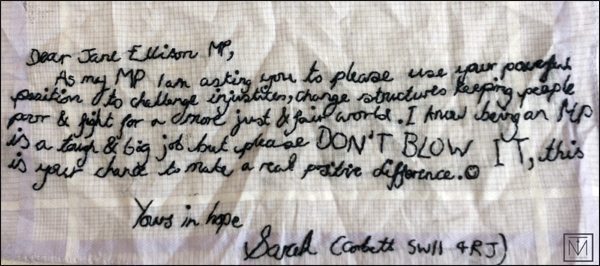 Dear Jane Ellison MP,
As my MP I am asking you to please use your powerful
position to challenge injustices, change structures keeping people
poor & fight for a more just & fair world. I know being an MP
is a tough & big job but please DON'T BLOW IT, this
is your chance to make a real positive difference.
Yours in hope
Sarah (Corbett SW11 4RJ)